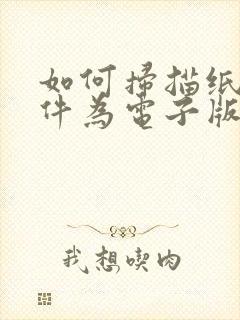 如何掃描纸
件為電子版
我想喫肉